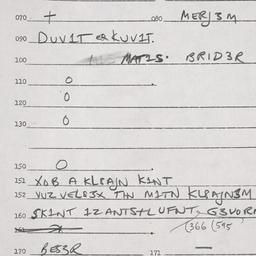 070 + 080 MERJ3M
090 DUV1T ER KUV1T.
100 MAT2S. BRID3R
110 O
120 O
130 O
150 O
151 XOB A KLPAJN K1NT
152 VUZ VELE3X THN M1TN KLPAJN3M
160 SK1NT 1Z ANTS+L UFNT, G3VORN
(366 (595
170 BES3R 171 —